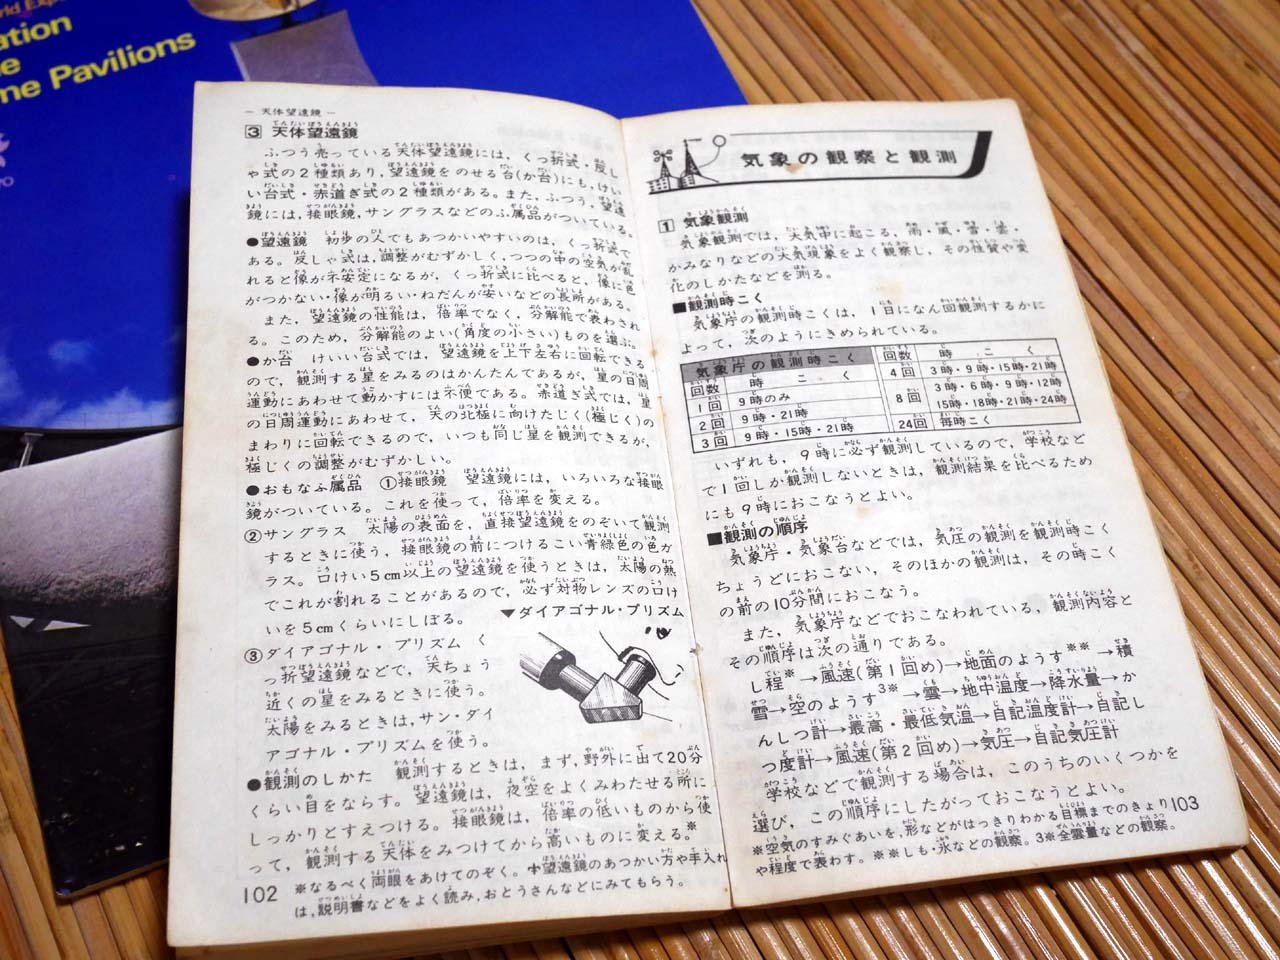 ation
e
me Pavilions
— 天体望遠鏡 —
3 天体望遠鏡
ふつう売っている天体望遠鏡には，くっ折式・反し
ゃ式の2種類あり，望遠鏡をのせる台(か台)にも，けい
い台式・赤道ぎ式の2種類がある。また，ふつう，望遠
鏡には，接眼鏡，サングラスなどのふ属品がついている。
●望遠鏡　初歩の人でもあつかいやすいのは，くっ折式で
ある。反しゃ式は，調整がむずかしく，つつの中の空気が乱
れると像が不安定になるが，くっ折式に比べると，像に色
がつかない・像が明るい・ねだんが安いなどの長所がある。
また，望遠鏡の性能は，倍率でなく，分解能で表わされ
る。このため，分解能のよい(角度の小さい)ものを選ぶ。
●か台　けいい台式では，望遠鏡を上下左右に回転できる
ので，観測する星をみるのはかんたんであるが，星の日周
運動にあわせて動かすには不便である。赤道ぎ式では，星
の日周運動にあわせて，天の北極に向けたじく(極じく)の
まわりに回転できるので，いつも同じ星を観測できるが，
極じくの調整がむずかしい。
●おもなふ属品　①接眼鏡　望遠鏡には，いろいろな接眼
鏡がついている。これを使って，倍率を変える。
②サングラス　太陽の表面を，直接望遠鏡をのぞいて観測
するときに使う，接眼鏡の前につけるこい青緑色の色ガ
ラス。口けい5cm以上の望遠鏡を使うときは，太陽の熱
でこれが割れることがあるので，必ず対物レンズの口け
いを5cmくらいにしぼる。
▼ダイアゴナル・プリズム
③ダイアゴナル・プリズム　く
っ折望遠鏡などで，天ちょう
近くの星をみるときに使う。
太陽をみるときは，サン・ダイ
アゴナル・プリズムを使う。
●観測のしかた　観測するときは，まず，野外に出て20分
くらい目をならす。望遠鏡は，夜空をよくみわたせる所に
しっかりとすえつける。接眼鏡は，倍率の低いものから使
って，観測する天体をみつけてから高いものに変える。※
102
※なるべく両眼をあけてのぞく。✢望遠鏡のあつかい方や手入れ
は，説明書などをよく読み，おとうさんなどにみてもらう。
気象の観察と観測
1 気象観測
気象観測では，大気中に起こる，雨・風・雪・雲・
かみなりなどの大気現象をよく観察し，その性質や変
化のしかたなどを測る。
■観測時こく
気象庁の観測時こくは，1日になん回観測するかに
よって，次のようにきめられている。
気象庁の観測時こく
回数　時　こ　く
1回　9時のみ
2回　9時・21時
3回　9時・15時・21時
回数　時　こ　く
4回　3時・9時・15時・21時
8回　3時・6時・9時・12時
15時・18時・21時・24時
24回　毎時こく
いずれも，9時に必ず観測しているので，学校など
で1回しか観測しないときは，観測結果を比べるため
にも9時におこなうとよい。
■観測の順序
気象庁・気象台などでは，気圧の観測を観測時こく
ちょうどにおこない，そのほかの観測は，その時こく
の前の10分間におこなう。
また，気象庁などでおこなわれている，観測内容と
その順序は次の通りである。
し程※→風速(第1回め)→地面のようす※※→積
雪→空のようす3※→雲→地中温度→降水量→か
んしつ計→最高・最低気温→自記温度計→自記し
つ度計→風速(第2回め)→気圧→自記気圧計
学校などで観測する場合は，このうちのいくつかを
選び，この順序にしたがっておこなうとよい。
※空気のすみぐあいを，形などがはっきりわかる目標までのきょり
や程度で表わす。※※しも・氷などの観察。3※全雲量などの観察。
103